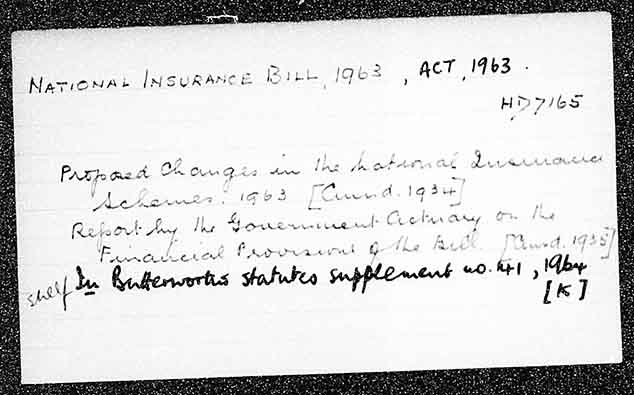 NATIONAL INSURANCE BILL, 1963, ACT, 1963.
HD7165
Proposed Changes in the National Insurance
Schemes. 1963 [Cmnd. 1934]
Report by the Government Actuary on the
Financial Provisions of the Bill. [Cmnd. 1935]
shelf In Butterworths statutes supplement no. 141, 1964
[K]